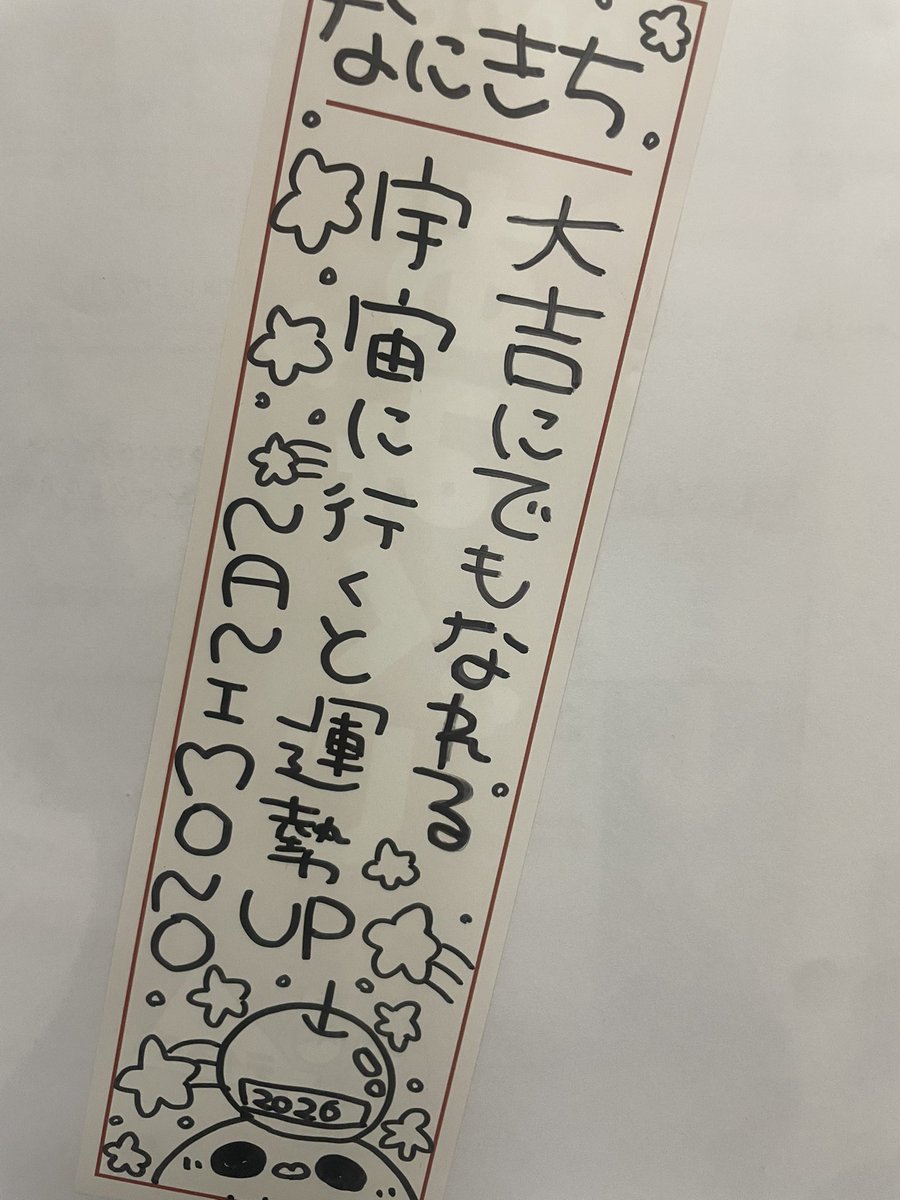 なにきち
大吉にでもなれる
宇宙に行くと運勢UP
NANIMONO
2026